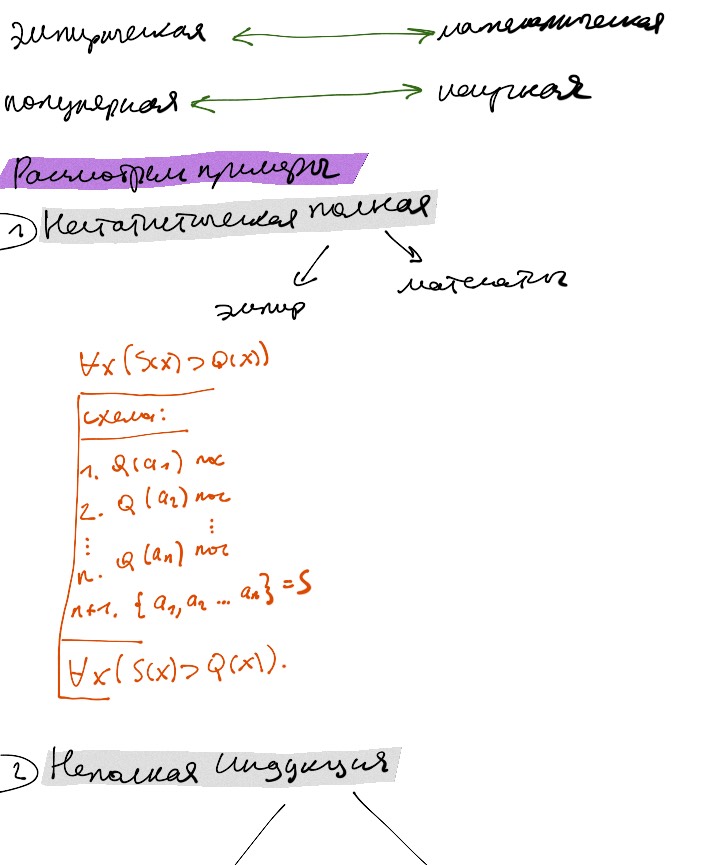 эмпирическая ⟷ математическая
популярная ⟷ научная
Рассмотрим примеры
1) Нестатистическая полная
эмпир математич
∀x(S(x)⊃Q(x))
схема:
1. Q(a₁) пос
2. Q(a₂) пос
⋮ ⋮
n. Q(aₙ) пос
n+1. {a₁,a₂ ... aₙ} = S
∀x(S(x)⊃Q(x)).
2) Неполная индукция